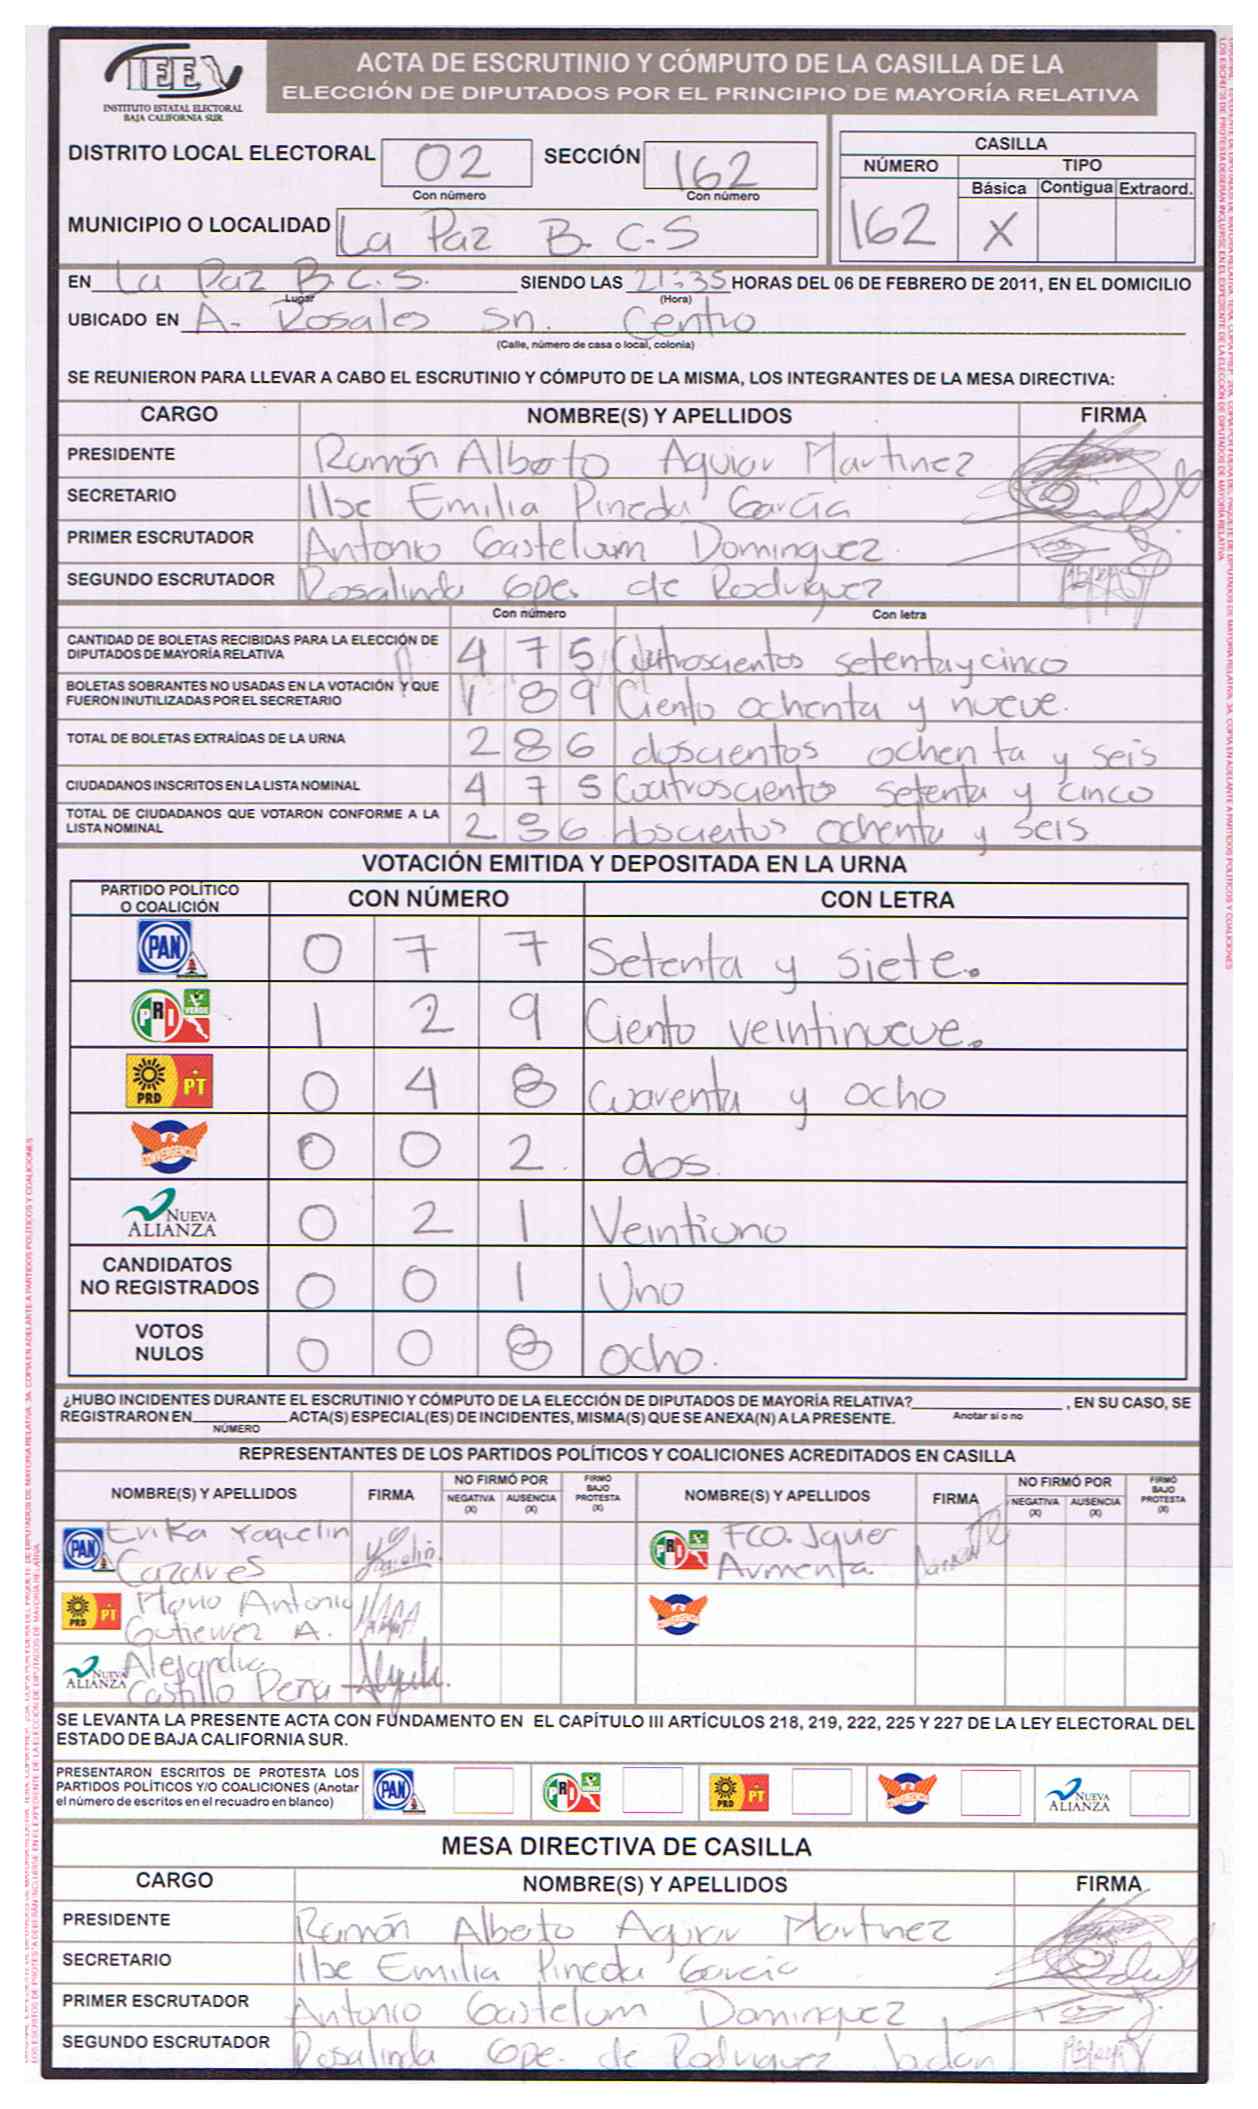 IEE
INSTITUTO ESTATAL ELECTORAL
BAJA CALIFORNIA SUR
ACTA DE ESCRUTINIO Y CÓMPUTO DE LA CASILLA DE LA
ELECCIÓN DE DIPUTADOS POR EL PRINCIPIO DE MAYORÍA RELATIVA
DISTRITO LOCAL ELECTORAL 02 SECCIÓN 162
Con número Con número
MUNICIPIO O LOCALIDAD La Paz B.C.S
CASILLA
NÚMERO TIPO
Básica Contigua Extraord.
162 X
EN La Paz B.C.S. SIENDO LAS 21:35 HORAS DEL 06 DE FEBRERO DE 2011, EN EL DOMICILIO
Lugar (Hora)
UBICADO EN A. Rosales Sn. Centro
(Calle, número de casa o local, colonia)
SE REUNIERON PARA LLEVAR A CABO EL ESCRUTINIO Y CÓMPUTO DE LA MISMA, LOS INTEGRANTES DE LA MESA DIRECTIVA:
CARGO NOMBRE(S) Y APELLIDOS FIRMA
PRESIDENTE Ramón Alberto Aguiar Martinez
SECRETARIO Ilse Emilia Pineda García
PRIMER ESCRUTADOR Antonio Gastelum Dominguez.
SEGUNDO ESCRUTADOR Rosalinda Gpe. de Rodriguez
Con número Con letra
CANTIDAD DE BOLETAS RECIBIDAS PARA LA ELECCIÓN DE
DIPUTADOS DE MAYORÍA RELATIVA 4 7 5 Cuatroscientos setenta y cinco
BOLETAS SOBRANTES NO USADAS EN LA VOTACIÓN Y QUE
FUERON INUTILIZADAS POR EL SECRETARIO 1 8 9 Ciento ochenta y nueve.
TOTAL DE BOLETAS EXTRAÍDAS DE LA URNA 2 8 6 doscientos ochenta y seis
CIUDADANOS INSCRITOS EN LA LISTA NOMINAL 4 7 5 Cuatroscientos setenta y cinco
TOTAL DE CIUDADANOS QUE VOTARON CONFORME A LA
LISTA NOMINAL 2 8 6 doscientos ochenta y seis
VOTACIÓN EMITIDA Y DEPOSITADA EN LA URNA
PARTIDO POLÍTICO
O COALICIÓN CON NÚMERO CON LETRA
PAN 0 7 7 Setenta y siete.
PRI VERDE 1 2 9 Ciento veintinueve.
PRD PT 0 4 8 Cuarenta y ocho
CONVERGENCIA 0 0 2. dos.
NUEVA ALIANZA 0 2 1 Veintiuno
CANDIDATOS
NO REGISTRADOS 0 0 1 Uno
VOTOS
NULOS 0 0 8 ocho.
¿HUBO INCIDENTES DURANTE EL ESCRUTINIO Y CÓMPUTO DE LA ELECCIÓN DE DIPUTADOS DE MAYORÍA RELATIVA? , EN SU CASO, SE
Anotar si o no
REGISTRARON EN ACTA(S) ESPECIAL(ES) DE INCIDENTES, MISMA(S) QUE SE ANEXA(N) A LA PRESENTE.
NÚMERO
REPRESENTANTES DE LOS PARTIDOS POLÍTICOS Y COALICIONES ACREDITADOS EN CASILLA
NOMBRE(S) Y APELLIDOS FIRMA NO FIRMÓ POR NEGATIVA (X) AUSENCIA (X) FIRMÓ BAJO PROTESTA (X) NOMBRE(S) Y APELLIDOS FIRMA NO FIRMÓ POR NEGATIVA (X) AUSENCIA (X) FIRMÓ BAJO PROTESTA (X)
PAN Erika Yaquelin
Cazares
PRI FCO. Javier
Armenta
PRD PT Mario Antonio
Gutierrez A.
CONVERGENCIA
NUEVA ALIANZA Alejandra
Castillo Peña
SE LEVANTA LA PRESENTE ACTA CON FUNDAMENTO EN EL CAPÍTULO III ARTÍCULOS 218, 219, 222, 225 Y 227 DE LA LEY ELECTORAL DEL
ESTADO DE BAJA CALIFORNIA SUR.
PRESENTARON ESCRITOS DE PROTESTA LOS
PARTIDOS POLÍTICOS Y/O COALICIONES (Anotar
el número de escritos en el recuadro en blanco)
PAN PRI PRD PT CONVERGENCIA NUEVA ALIANZA
MESA DIRECTIVA DE CASILLA
CARGO NOMBRE(S) Y APELLIDOS FIRMA
PRESIDENTE Ramón Alberto Aguiar Martinez
SECRETARIO Ilse Emilia Pineda García
PRIMER ESCRUTADOR Antonio Gastelum Dominguez
SEGUNDO ESCRUTADOR Rosalinda Gpe. de Rodriguez